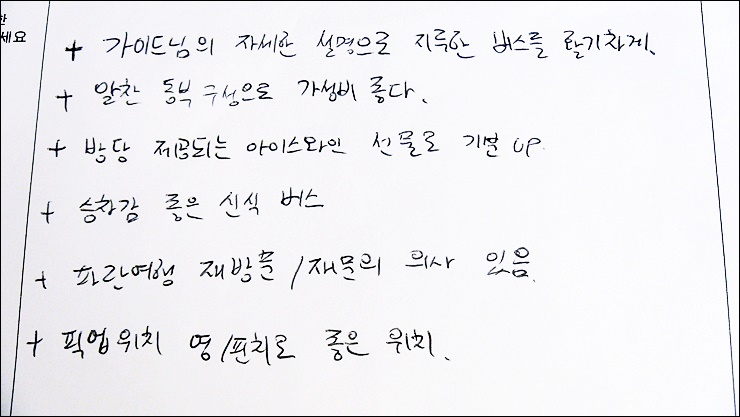 한
세요
+ 가이드님의 자세한 설명으로 지루한 버스를 활기차게.
+ 알찬 동부 구성으로 가성비 좋다.
+ 방당 제공되는 아이스와인 선물로 기분 UP
+ 승차감 좋은 신식 버스
+ 파란여행 재방문 / 재문의 의사 있음.
+ 픽업위치 영/핀치로 좋은 위치.